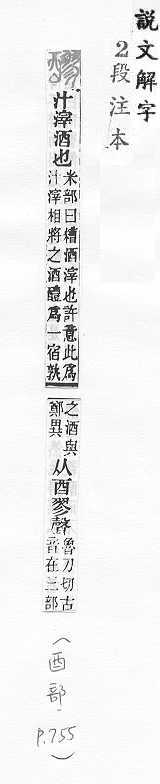 說文解字
2段注本
醪
汁滓酒也
米部曰糟酒滓也許意此爲
汁滓相將之酒醴爲一宿孰
之酒與
鄭異
从酉翏聲
魯刀切古
音在三部
(酉部. P.755)